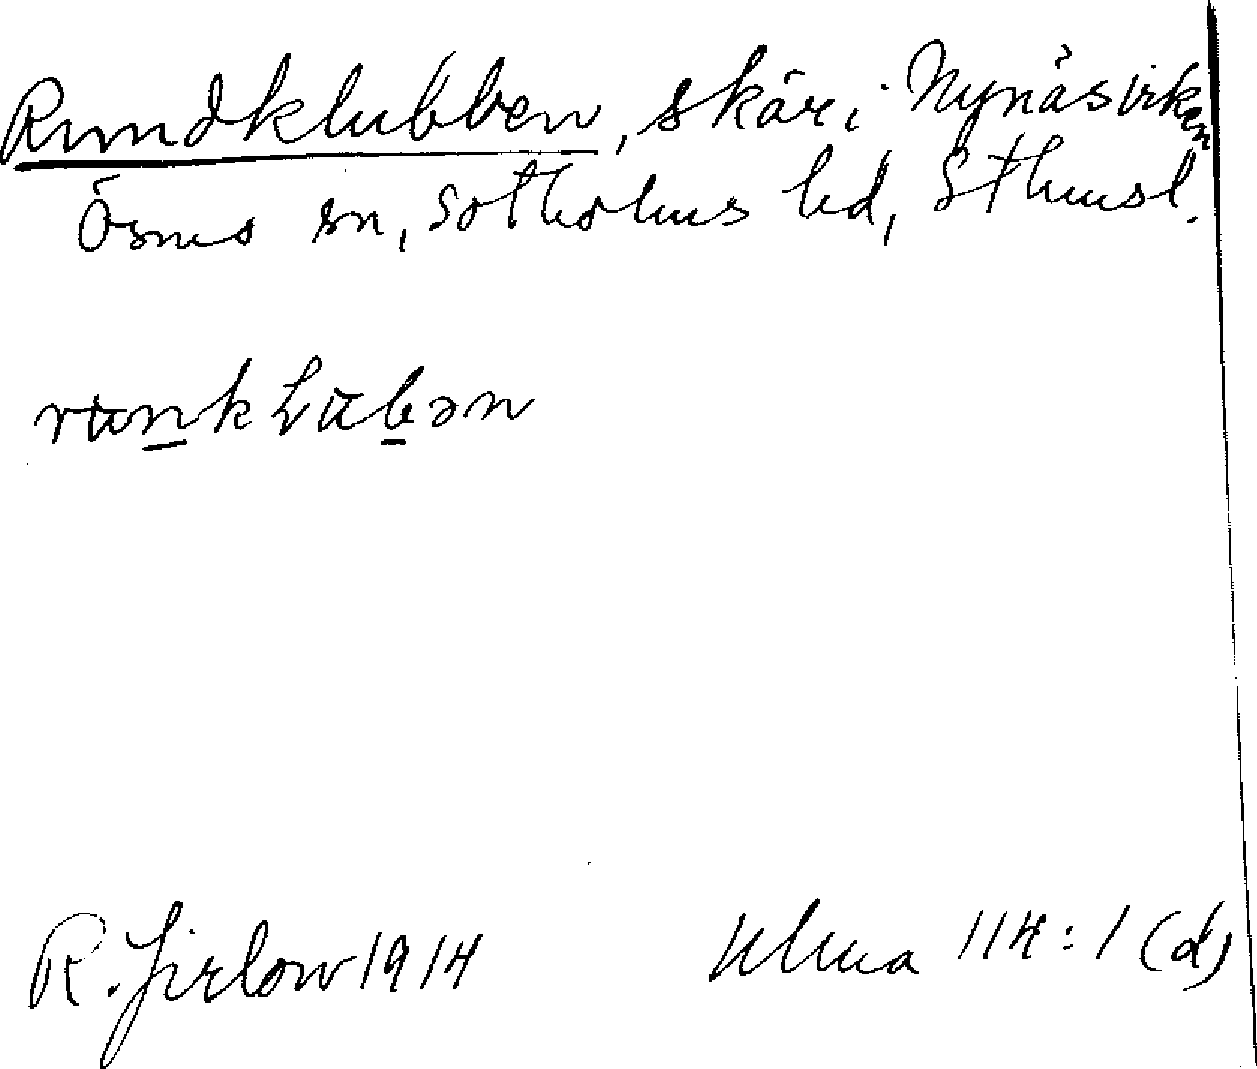 Rundklubben, skär i Nynäsviken
Ösmo sn, Sotholms hd, Sthmsl.
runkLubən
R. Jirlow 1914 Ulma 114:1 (d)